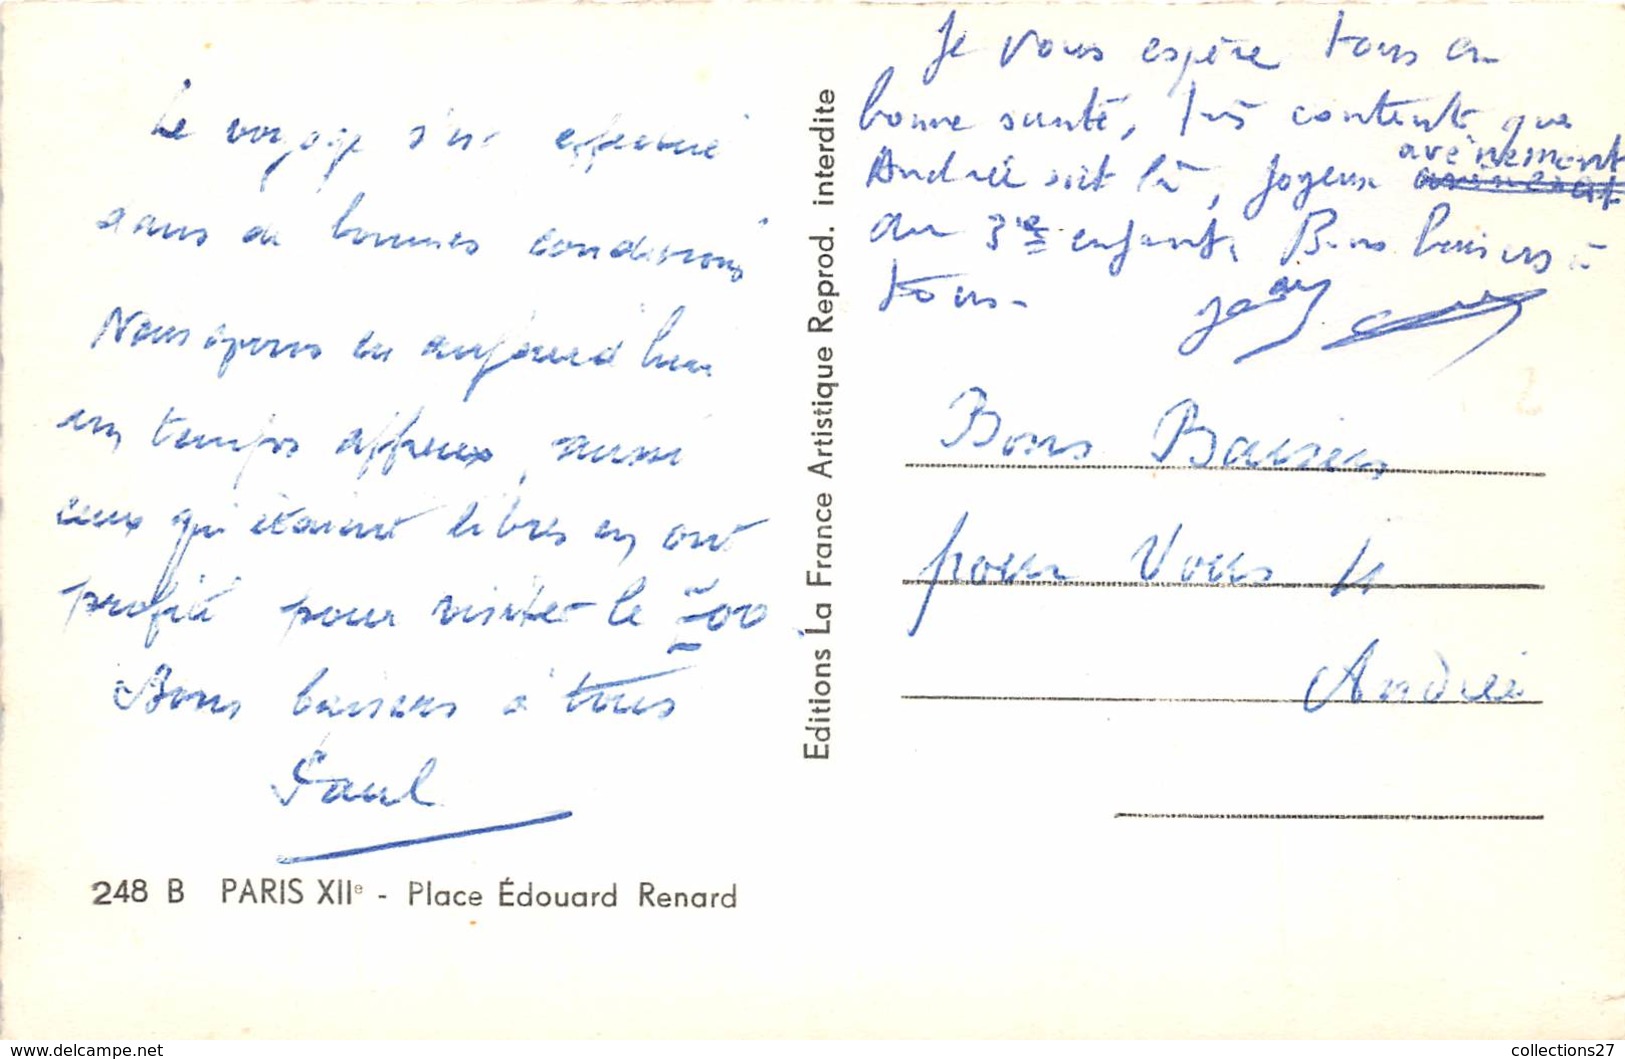 Le voyage s'est effectué
dans de bonnes conditions
Nous avons eu aujourd'hui
un temps affreux, aussi
ceux qui étaient libres en ont
profité pour visiter le zoo
Bons baisers à tous
Paul
248 B PARIS XIIe - Place Édouard Renard
Editions La France Artistique Reprod. interdite
Je vous espère tous en
bonne santé, très contente que
Andrée soit là, joyeux avènement
du 3ie enfant. Bons baisers à
tous.
Bons Baisers
pour Vous 4
Andrée
www.delcampe.net
collections27